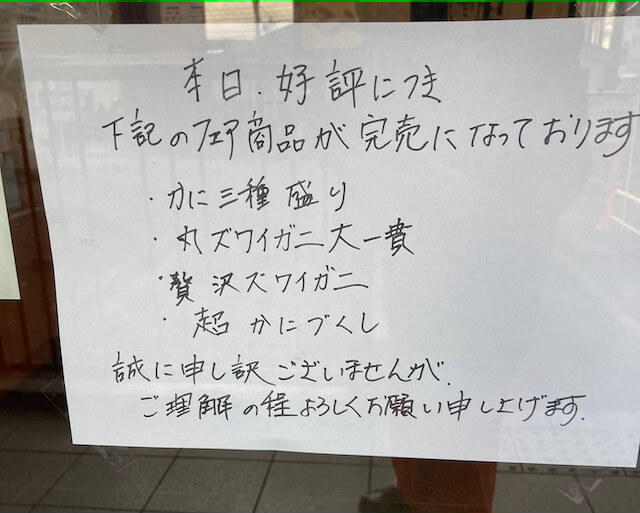 本日、好評につき
下記のフェア商品が完売になっております
・かに三種盛り
・丸ズワイガニ大一貫
・贅沢ズワイガニ
・超かにづくし
誠に申し訳ございませんが、
ご理解の程よろしくお願い申し上げます。